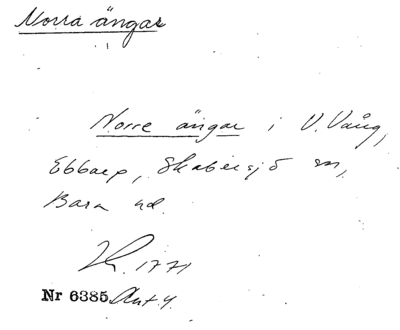 Norra ängar
Norre ängar i V. Vång,
Ebbarp, Skabersjö sn,
Bara hd.
1771
Nr 6385 Ant. 4.